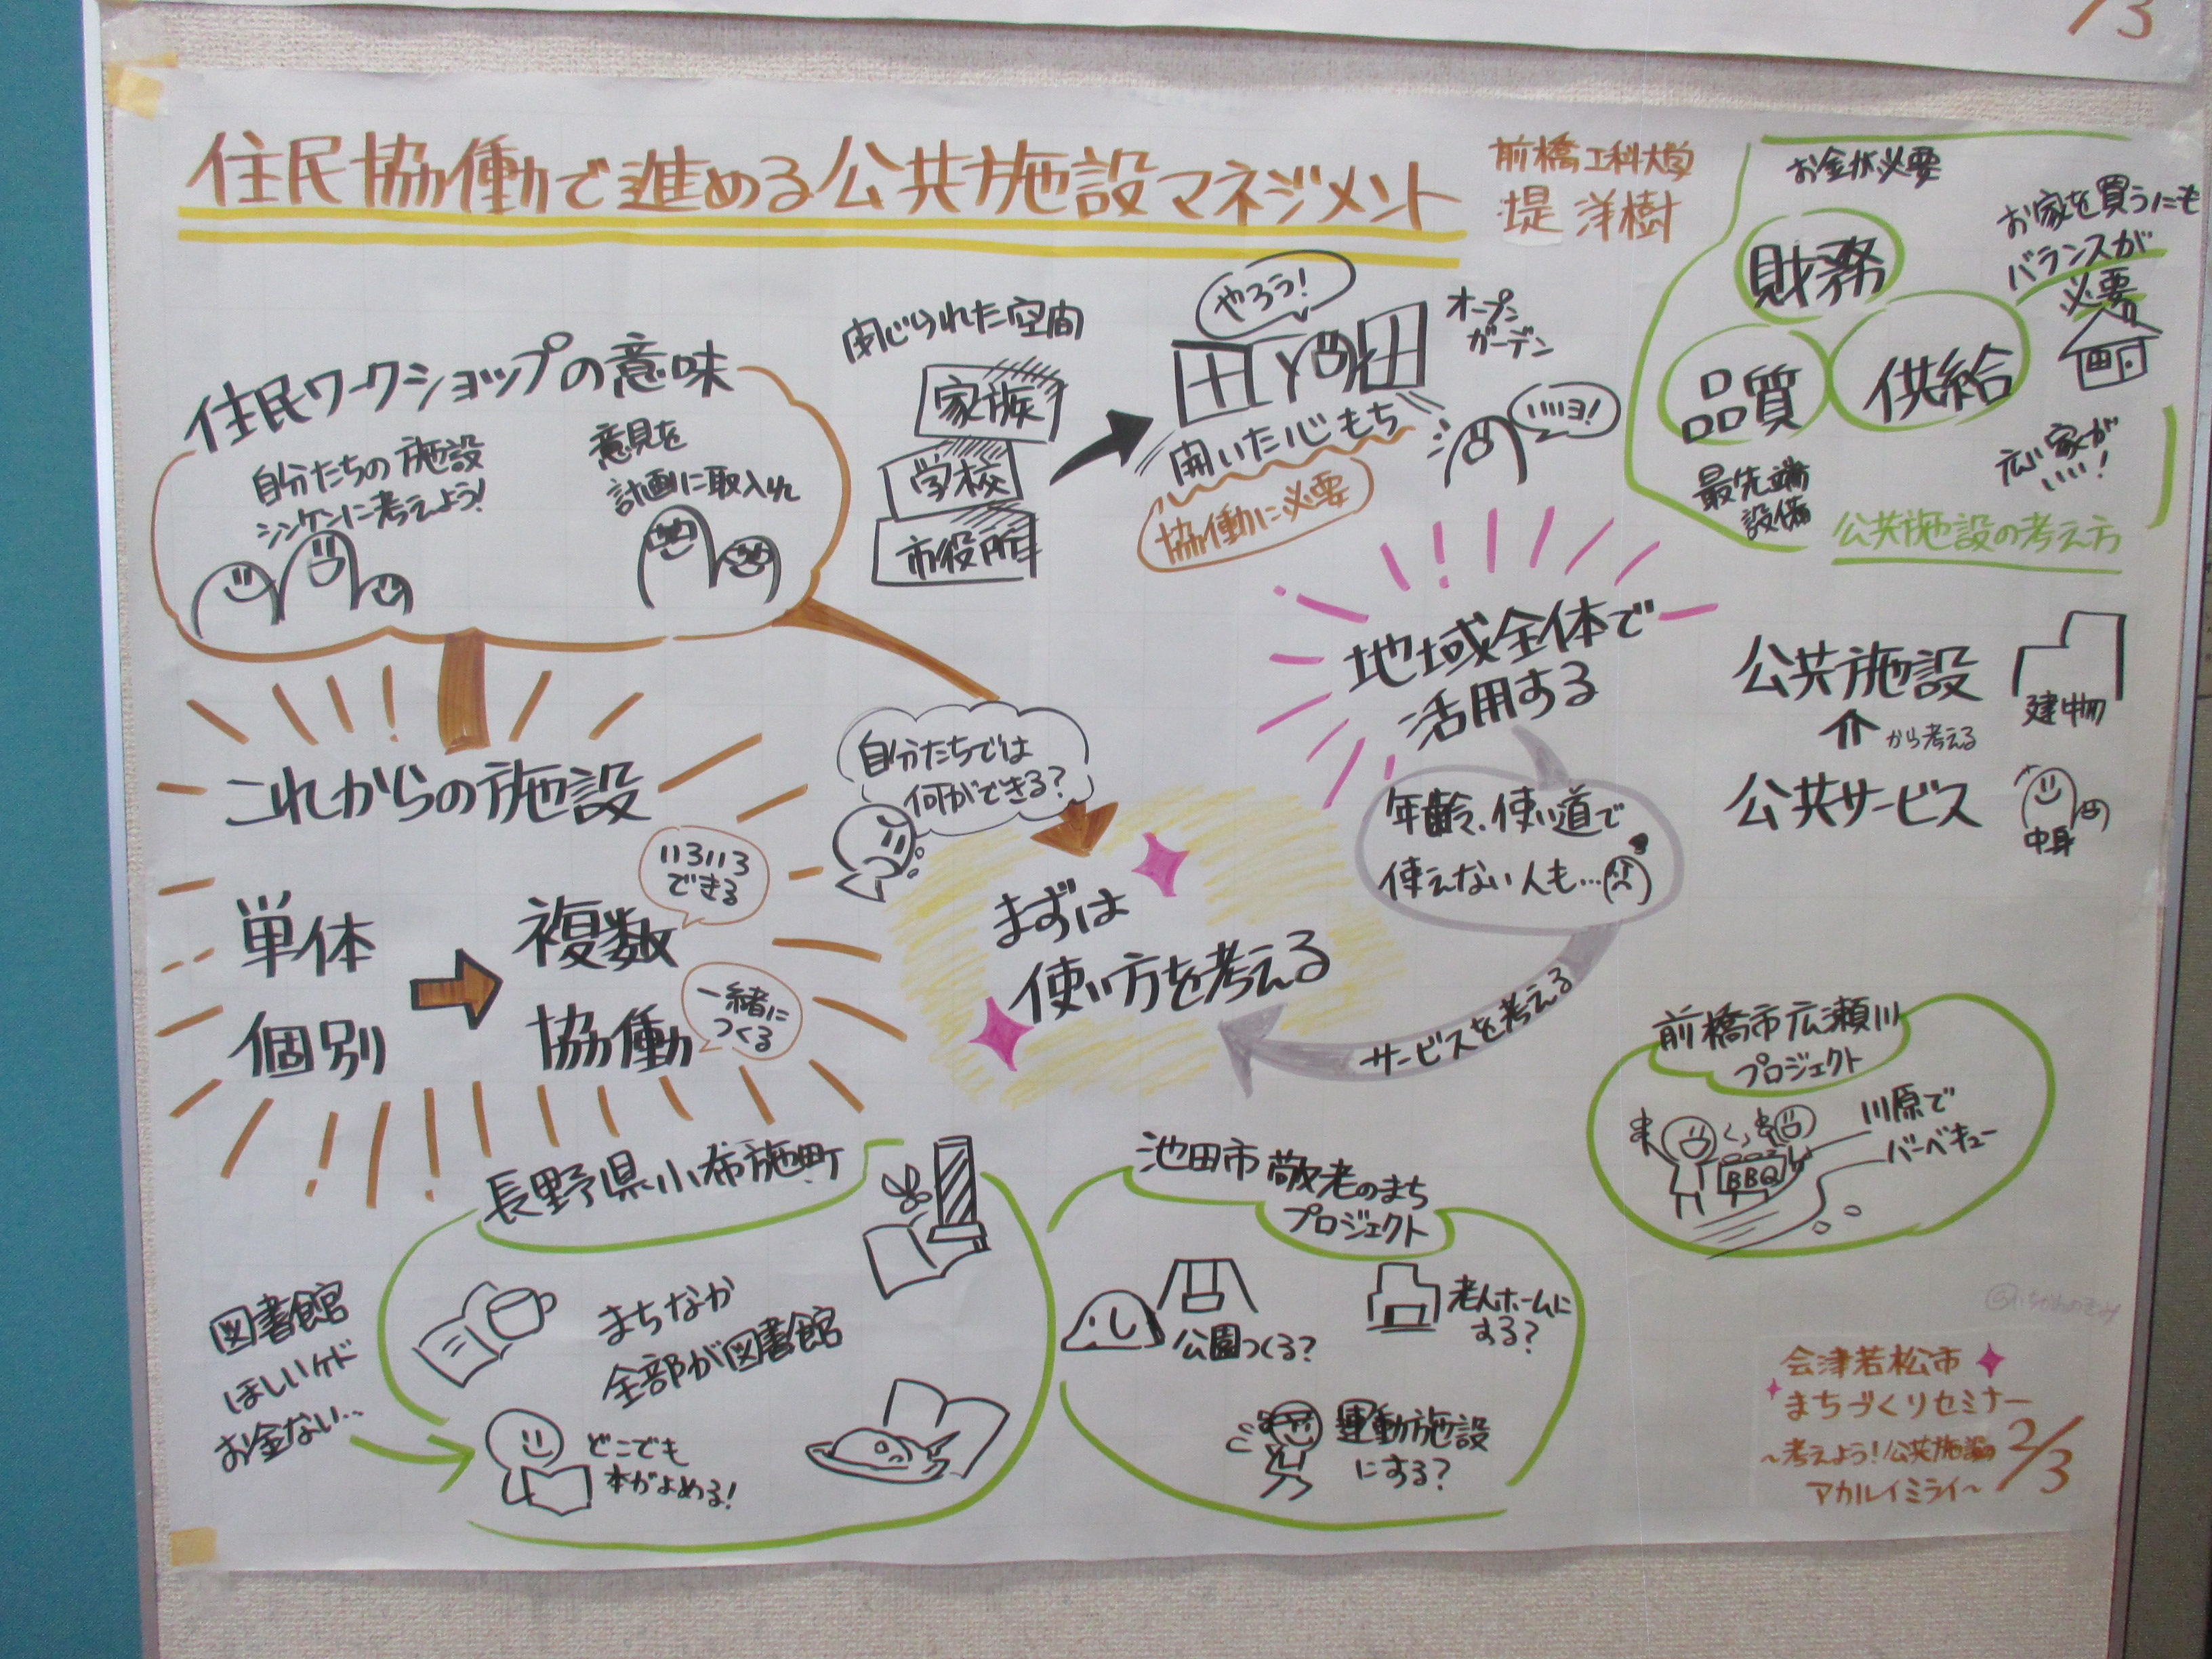 /3
住民協働で進める公共施設マネジメント
前橋工科大学
堤 洋樹
お金が必要
財務
品質
供給
お家を買うにも
バランスが
必要
広い家が
いい!
最先端
設備
公共施設の考え方
住民ワークショップの意味
自分たちの施設
シンケンに考えよう!
意見を
計画に取入れ
閉じられた空間
家族
学校
市役所
やろう!
オープン
ガーデン
開いた心もち
いいヨ!
協働に必要
地域全体で
活用する
年齢、使い道で
使えない人も…
サービスを考える
公共施設
から考える
公共サービス
建物
中身
これからの施設
単体
個別
複数
協働
いろいろ
できる
一緒に
つくる
自分たちでは
何ができる?
まずは
使い方を考える
前橋市広瀬川
プロジェクト
川原で
バーベキュー
BBQ
長野県小布施町
図書館
ほしいケド
お金ない…
まちなか
全部が図書館
どこでも
本がよめる!
池田市敬老のまち
プロジェクト
公園つくる?
老人ホームに
する?
運動施設
にする?
会津若松市
まちづくりセミナー
～考えよう!公共施設の
アカルイミライ～
2/3